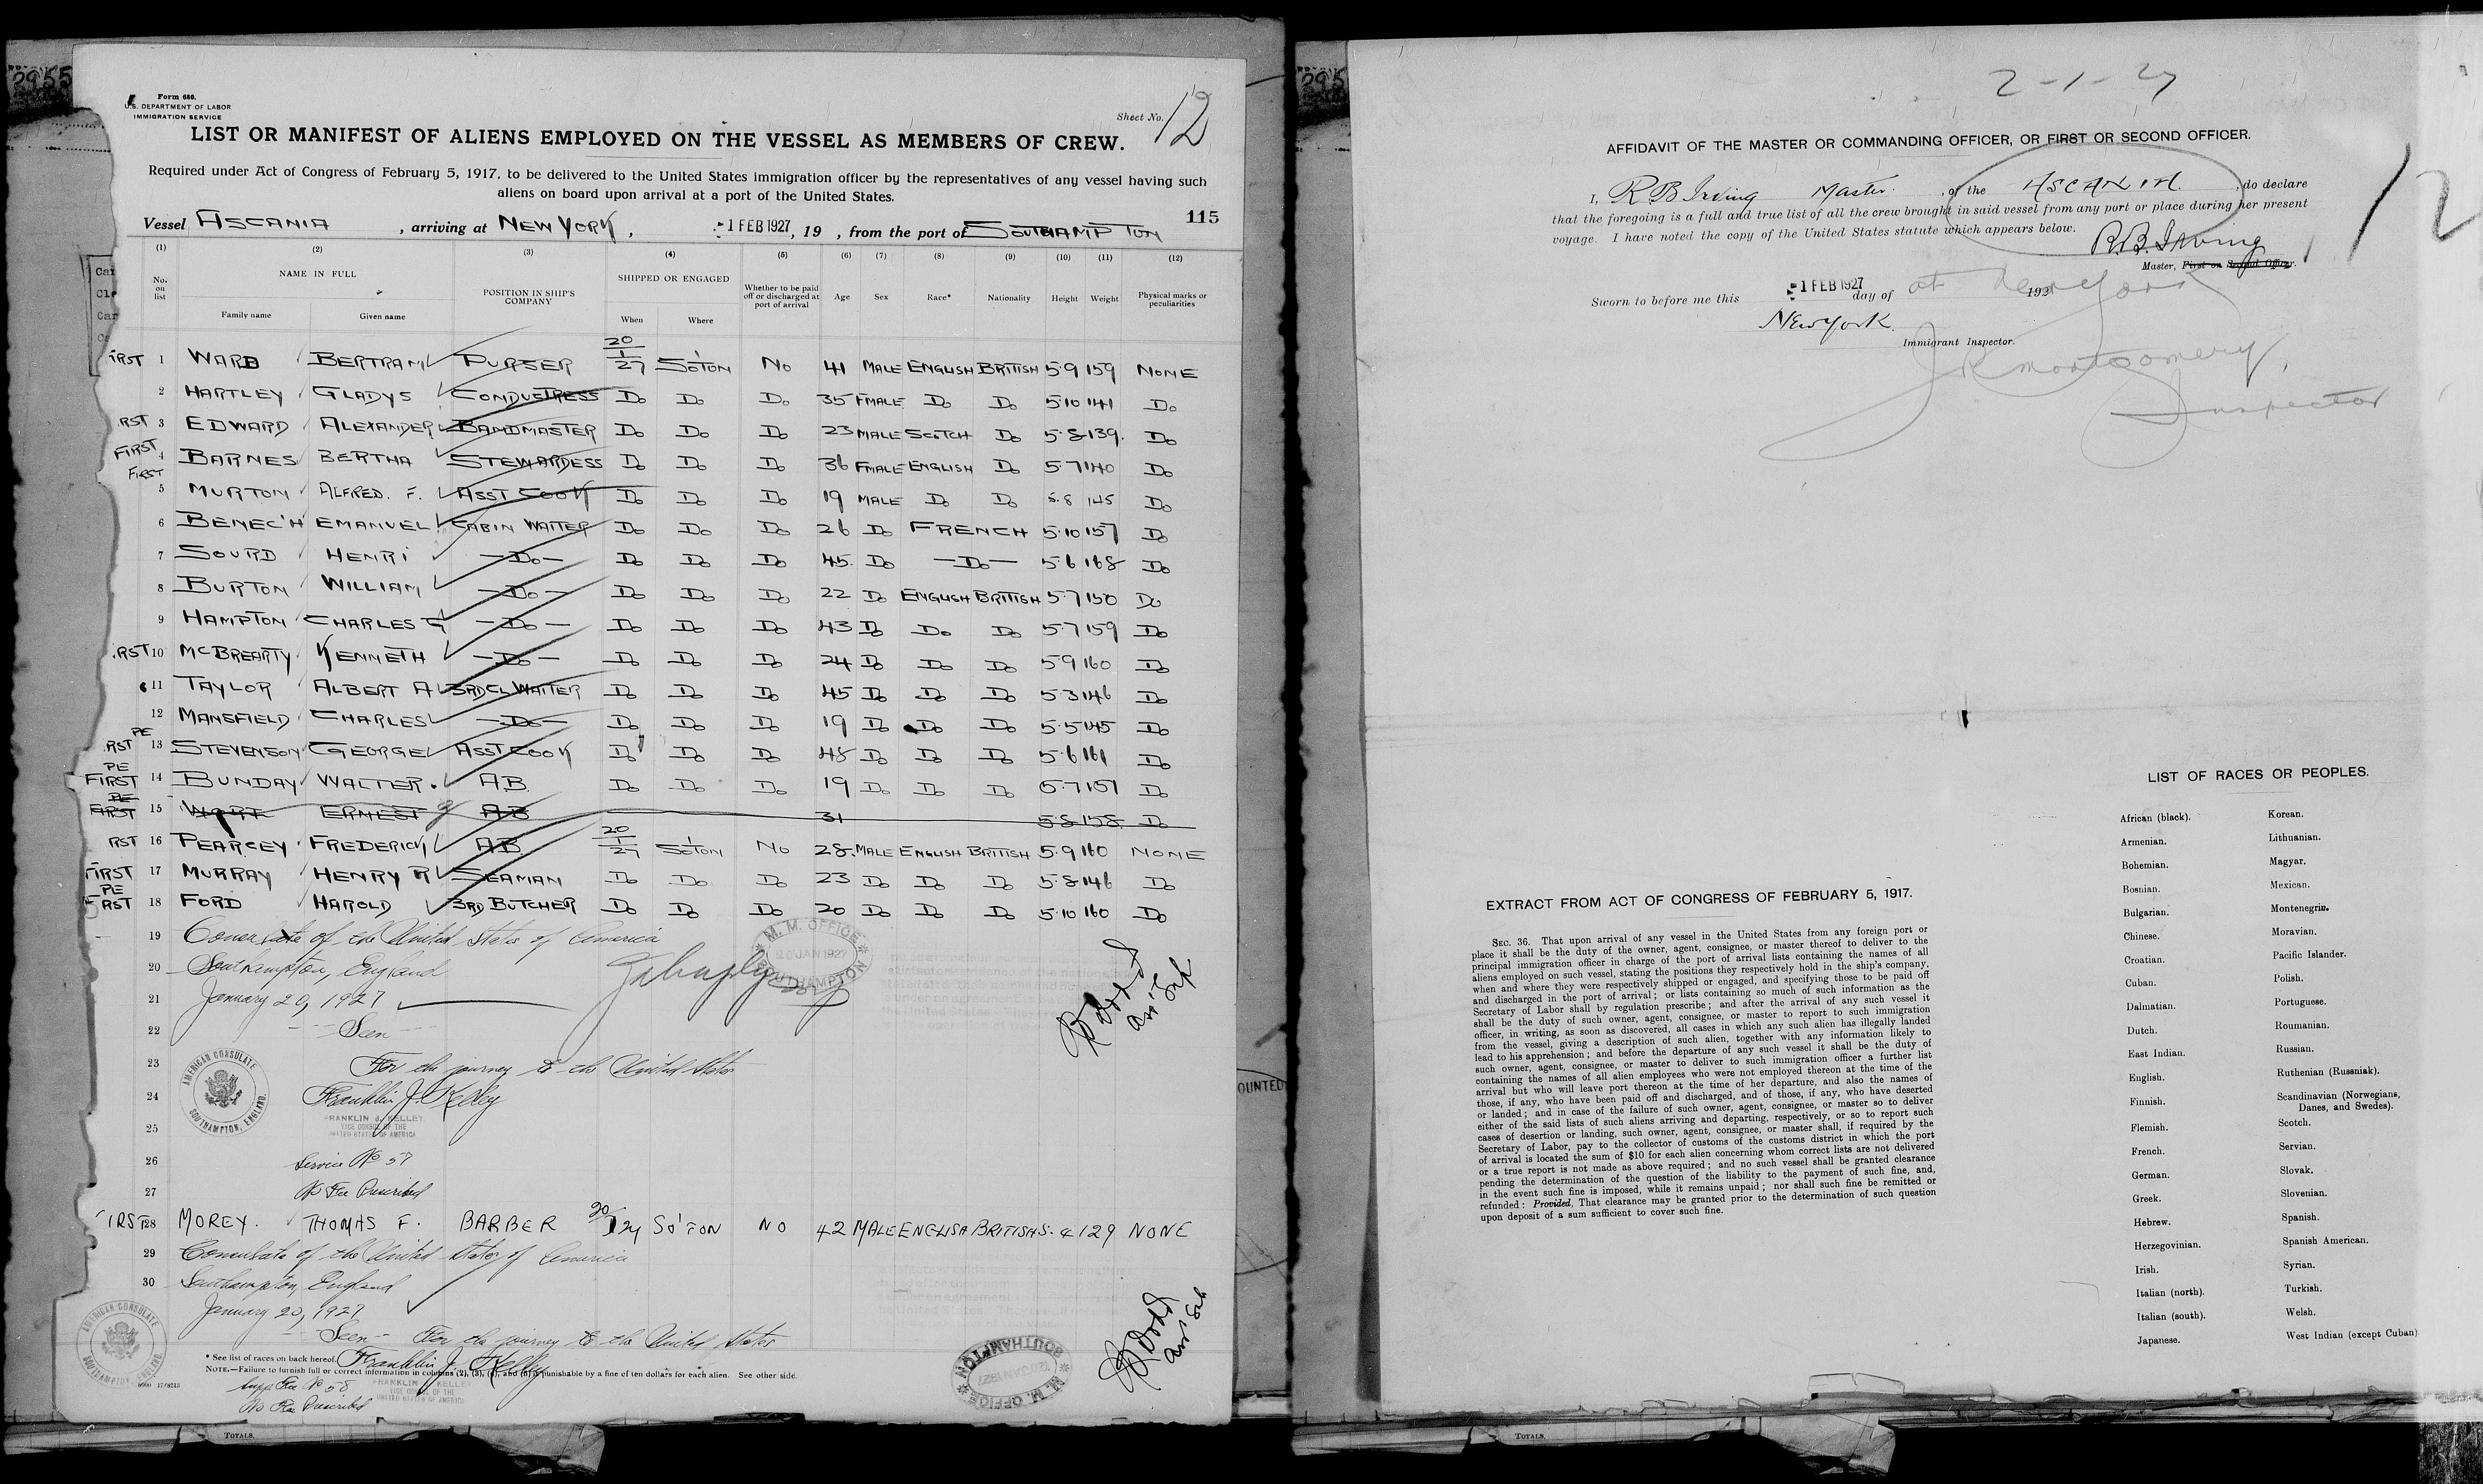 2955
Form 680.
U.S. DEPARTMENT OF LABOR
IMMIGRATION SERVICE
Sheet No. 12
LIST OR MANIFEST OF ALIENS EMPLOYED ON THE VESSEL AS MEMBERS OF CREW.
Required under Act of Congress of February 5, 1917, to be delivered to the United States immigration officer by the representatives of any vessel having such
aliens on board upon arrival at a port of the United States.
115
Vessel ASCANIA, arriving at NEW YORK, -1 FEB 1927, 19 , from the port of SOUTHAMPTON
(1) (2) (3) (4) (5) (6) (7) (8) (9) (10) (11) (12)
No. on list NAME IN FULL POSITION IN SHIP'S COMPANY SHIPPED OR ENGAGED Whether to be paid off or discharged at port of arrival Age Sex Race* Nationality Height Weight Physical marks or peculiarities
Family name Given name When Where
IRST 1 WARD BERTRAM PURSER 20/1/27 SOTON NO 41 MALE ENGLISH BRITISH 5.9 159 NONE
2 HARTLEY GLADYS CONDUCTRESS DO DO DO 35 FMALE DO DO 5.10 141 DO
RST 3 EDWARD ALEXANDER BANDMASTER DO DO DO 23 MALE SCOTCH DO 5.8 139. DO
FIRST 4 BARNES BERTHA STEWARDESS DO DO DO 36 FMALE ENGLISH DO 5.7 140 DO
FIRST 5 MURTON ALFRED. F. ASST COOK DO DO DO 19 MALE DO DO 5.8 145 DO
6 BENEC'H EMANUEL CABIN WAITER DO DO DO 26 DO FRENCH 5.10 157 DO
7 SOURD HENRI -DO- DO DO DO 45. DO -DO- 5.6 168 DO
8 BURTON WILLIAM -DO- DO DO DO 22 DO ENGLISH BRITISH 5.7 150 DO
9 HAMPTON CHARLES G -DO- DO DO DO 43 DO DO DO 5.7 159 DO
RST 10 McBREARTY KENNETH -DO- DO DO DO 24 DO DO DO 5.9 160 DO
11 TAYLOR ALBERT A 3RD CL WAITER DO DO DO 45 DO DO DO 5.3 146 DO
12 MANSFIELD CHARLES -DO- DO DO DO 19 DO DO DO 5.5 145 DO
PE
RST 13 STEVENSON GEORGE ASST COOK DO DO DO 48 DO DO DO 5.6 161 DO
PE
FIRST 14 BUNDAY WALTER. A.B. DO DO DO 19 DO DO DO 5.7 151 DO
PE
FIRST 15 ERNEST AB 31 5.8 158 DO
RST 16 PEARCEY FREDERICK A.B. 20/1/27 SOTON NO 28. MALE ENGLISH BRITISH 5.9 160 NONE
FIRST 17 MURRAY HENRY R SEAMAN DO DO DO 23 DO DO DO 5.8 146 DO
PE
RST 18 FORD HAROLD 3RD BUTCHER DO DO DO 20 DO DO DO 5.10 160 DO
19 Consulate of the United States of America
M. M. OFFICE 20 JAN 1927 SOUTHAMPTON
20 Southampton, England
21 January 20, 1927
22 Seen
23 For the journey to the United States
AMERICAN CONSULATE SOUTHAMPTON, ENGLAND.
24 Franklin J. Kelley
FRANKLIN J. KELLEY
VICE CONSUL OF THE
UNITED STATES OF AMERICA
25
26 Service No 57
27 No Fee Prescribed
IRST 28 MOREY. THOMAS F. BARBER 20/1/27 SO'TON NO 42 MALE ENGLISH BRITISH 5.4 129 NONE
29 Consulate of the United States of America
30 Southampton, England
January 20, 1927
Seen - For the journey to the United States
AMERICAN CONSULATE SOUTHAMPTON, ENGLAND.
M. M. OFFICE 20 JAN 1927 SOUTHAMPTON
* See list of races on back hereof. Franklin J. Kelley
NOTE.—Failure to furnish full or correct information in columns (2), (3), (4), and (5) is punishable by a fine of ten dollars for each alien. See other side.
FRANKLIN J KELLEY
VICE CONSUL OF THE
UNITED STATES OF AMERICA
No 58
No Fee Prescribed
TOTALS.
2-1-27
12
AFFIDAVIT OF THE MASTER OR COMMANDING OFFICER, OR FIRST OR SECOND OFFICER.
I, R B Irving Master. , of the ASCANIA. , do declare
that the foregoing is a full and true list of all the crew brought in said vessel from any port or place during her present
voyage. I have noted the copy of the United States statute which appears below.
R.B. Irving
Master, First or Second Officer.
Sworn to before me this -1 FEB 1927 day of at New York 192
New York.
Immigrant Inspector.
J R Montgomery,
Inspector
EXTRACT FROM ACT OF CONGRESS OF FEBRUARY 5, 1917.
SEC. 36. That upon arrival of any vessel in the United States from any foreign port or
place it shall be the duty of the owner, agent, consignee, or master thereof to deliver to the
principal immigration officer in charge of the port of arrival lists containing the names of all
aliens employed on such vessel, stating the positions they respectively hold in the ship's company,
when and where they were respectively shipped or engaged, and specifying those to be paid off
and discharged in the port of arrival; or lists containing so much of such information as the
Secretary of Labor shall by regulation prescribe; and after the arrival of any such vessel it
shall be the duty of such owner, agent, consignee, or master to report to such immigration
officer, in writing, as soon as discovered, all cases in which any such alien has illegally landed
from the vessel, giving a description of such alien, together with any information likely to
lead to his apprehension; and before the departure of any such vessel it shall be the duty of
such owner, agent, consignee, or master to deliver to such immigration officer a further list
containing the names of all alien employees who were not employed thereon at the time of the
arrival but who will leave port thereon at the time of her departure, and also the names of
those, if any, who have been paid off and discharged, and of those, if any, who have deserted
or landed; and in case of the failure of such owner, agent, consignee, or master so to deliver
either of the said lists of such aliens arriving and departing, respectively, or so to report such
cases of desertion or landing, such owner, agent, consignee, or master shall, if required by the
Secretary of Labor, pay to the collector of customs of the customs district in which the port
of arrival is located the sum of $10 for each alien concerning whom correct lists are not delivered
or a true report is not made as above required; and no such vessel shall be granted clearance
pending the determination of the question of the liability to the payment of such fine, and,
in the event such fine is imposed, while it remains unpaid; nor shall such fine be remitted or
refunded: Provided, That clearance may be granted prior to the determination of such question
upon deposit of a sum sufficient to cover such fine.
LIST OF RACES OR PEOPLES.
African (black). Korean.
Armenian. Lithuanian.
Bohemian. Magyar.
Bosnian. Mexican.
Bulgarian. Montenegrin.
Chinese. Moravian.
Croatian. Pacific Islander.
Cuban. Polish.
Dalmatian. Portuguese.
Dutch. Roumanian.
East Indian. Russian.
English. Ruthenian (Russniak).
Finnish. Scandinavian (Norwegians, Danes, and Swedes).
Flemish. Scotch.
French. Servian.
German. Slovak.
Greek. Slovenian.
Hebrew. Spanish.
Herzegovinian. Spanish American.
Irish. Syrian.
Italian (north). Turkish.
Italian (south). Welsh.
Japanese. West Indian (except Cuban)
TOTALS.